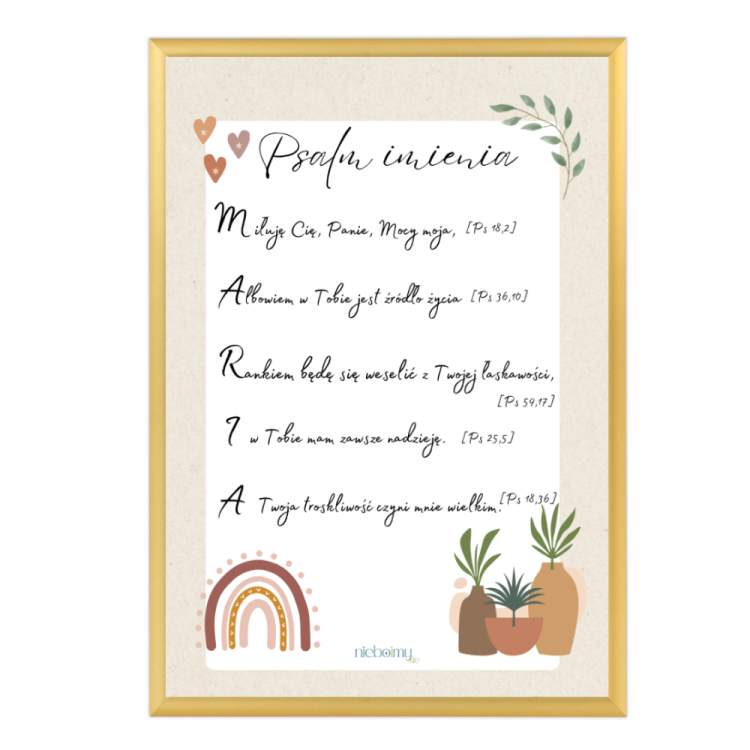 Psalm imienia
Miłuję Cię, Panie, Mocy moja, [Ps 18,2]
Albowiem w Tobie jest źródło życia [Ps 36,10]
Rankiem będę się weselić z Twojej łaskawości,
[Ps 59,17]
I w Tobie mam zawsze nadzieję. [Ps 25,5]
A Twoja troskliwość czyni mnie wielkim. [Ps 18,36]
nieboimy